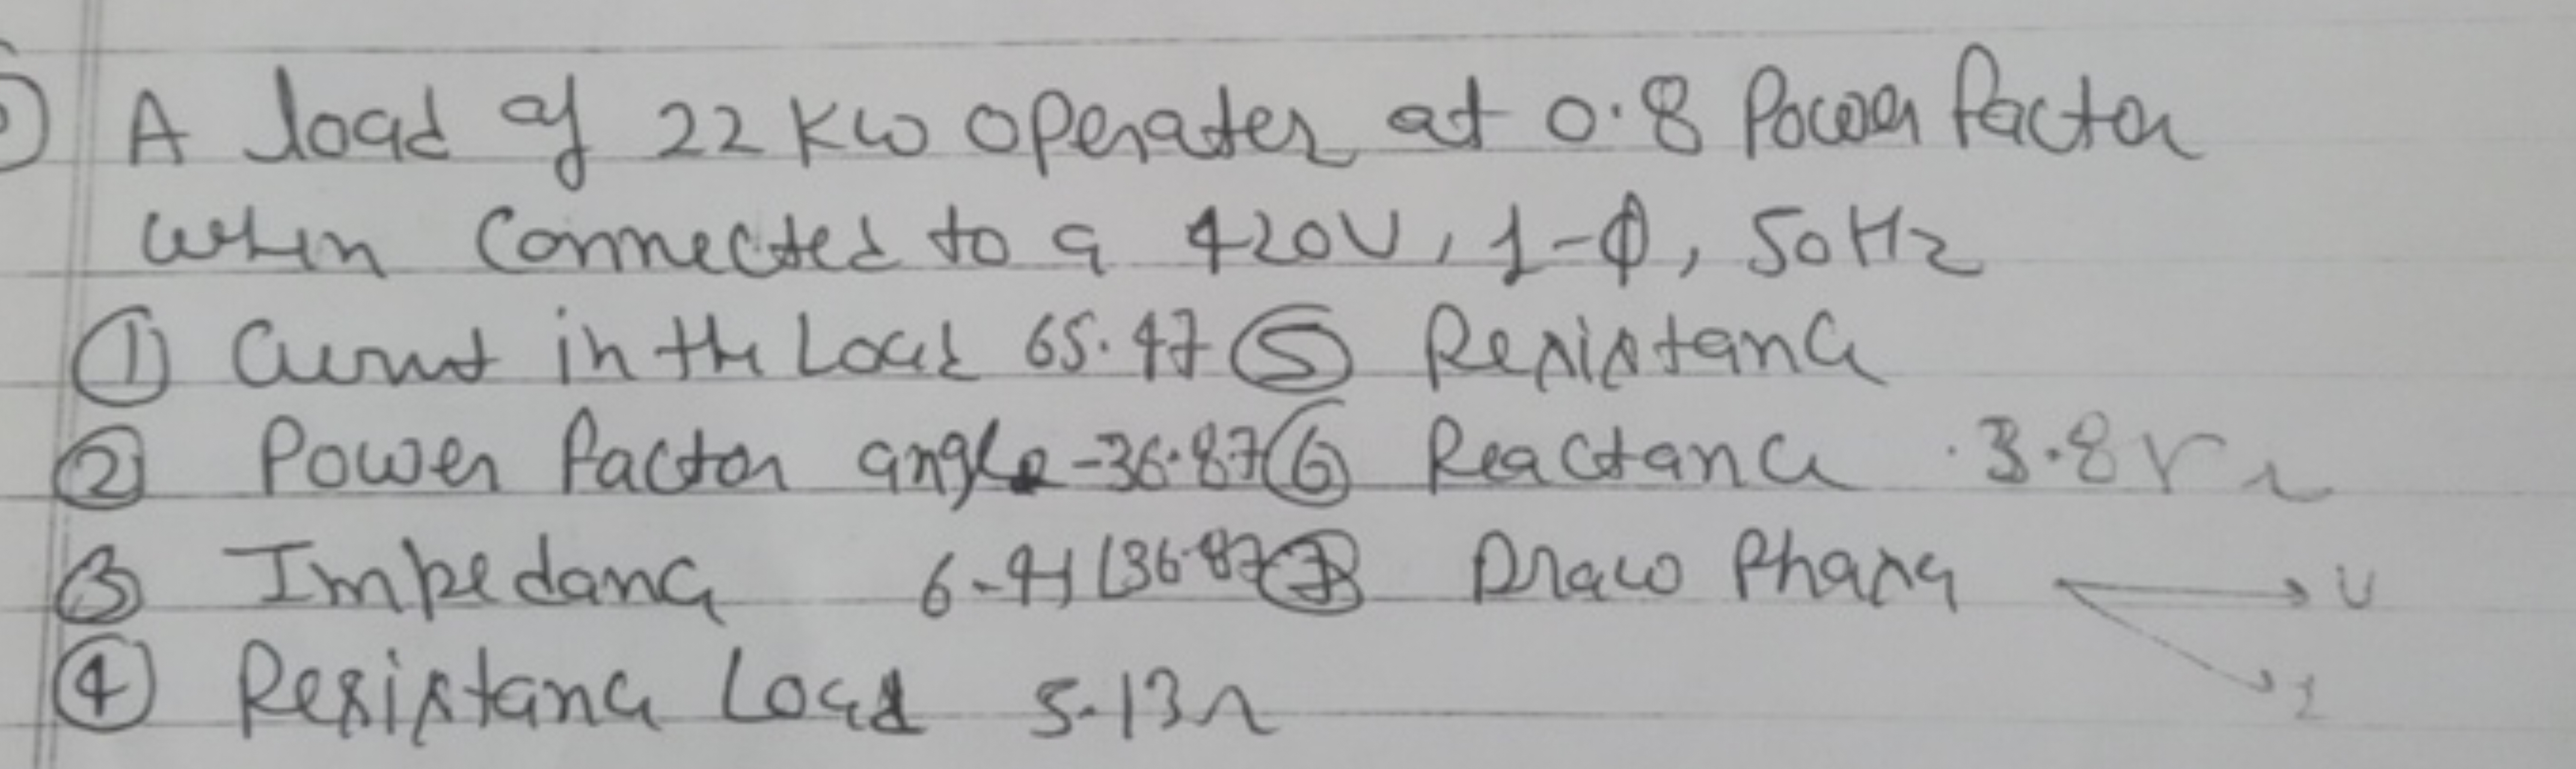 A load of 22 KW operates at 0.8 Power factor
when connected to a 420V, 1-ϕ, 50Hz
① Current in the Load 65.47 ⑤ Resistance
② Power factor angle -36.87 ⑥ Reactance 3.8
③ Impedance 6.41 ∠36.87 ⑦ Draw Phasor V
④ Resistance Load 5.13Ω I